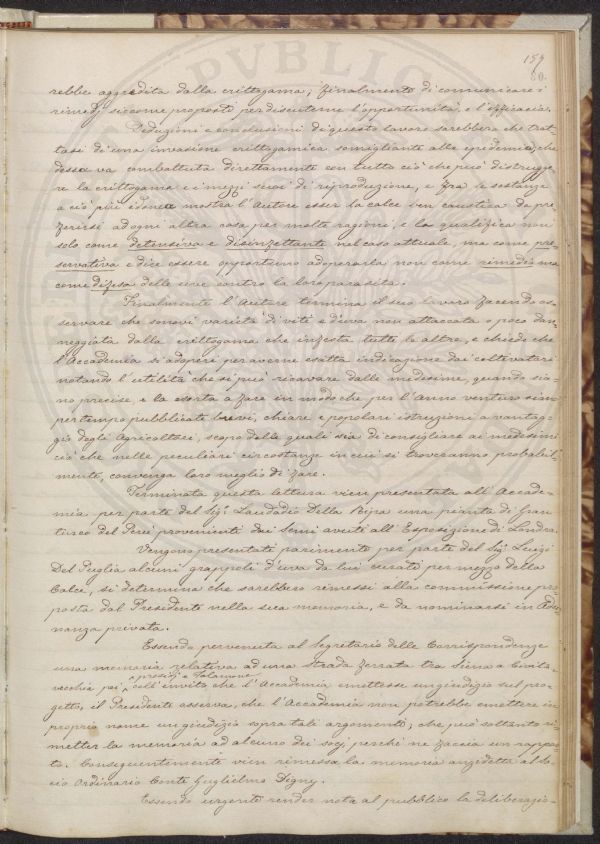 159
80.
rebbe aggredita dalla crittogama; finalmente di comunicare i
rimedj siccome proposti per discuterne l'opportunità, e l'efficacia.
Deduzioni e conclusioni di questo lavoro sarebbero che trat-
tasi di una invasione crittogamica somigliante alle epidemie, che
dessa va combattuta direttamente con tutto ciò che può distrugge-
re la crittogama e i mezzi suoi di riproduzione, e fra le sostanze
a ciò più idonee mostra l'Autore esser la calce ben caustica da pre-
ferirsi ad ogni altra cosa per molte ragioni, e la qualifica non
solo come detensiva e disinfettante nel caso attuale, ma come pre-
servativa e dice essere opportuno adoperarla non come rimedio ma
come difesa delle uve contro la loro parasita.
Finalmente l'Autore termina il suo lavoro facendo os-
servare che sonovi varietà di viti e d'uva non attaccata o poco dan-
neggiata dalla crittogama che infesta tutte le altre, e chiede che
l'Accademia si adoperi per averne esatta indicazione dai coltivatori
notando l'utilità che si può ricavare dalle medesime, quando sia-
no precise, e la esorta a fare in modo che per l'Anno venturo siano
per tempo pubblicate brevi, chiare e popolari istruzioni a vantag-
gio degli Agricoltori, scopo delle quali sia di consigliare ai medesimi
ciò che nelle peculiari circostanze in cui si troveranno probabil-
mente, converga loro meglio di fare.
Terminata questa lettura vien presentata all'Accade-
mia per parte del Sig.r Laudadio Della Ripa una pianta di Gran
turco del Perù proveniente dai semi avuti all'Esposizione di Londra.
Vengono presentati parimente per parte del Sig.r Luigi
Del Puglia alcuni grappoli d'uva da lui curati per mezzo della
Calce, si determina che sarebbero rimessi alla commissione pro-
posta dal Presidente nella sua memoria, e da nominarsi in Adu-
nanza privata.
Essendo pervenuta al Segretario delle Corrispondenze
una memoria relativa ad una strada ferrata tra Siena e Civita-
vecchia pei presidj e Talamone coll'invito che l'Accademia emettesse un giudizio sul pro-
getto, il Presidente osserva, che l'Accademia non potrebbe emettere in
proprio nome un giudizio sopra tale argomento, che può soltanto ri-
metter la memoria ad alcuno dei socj, perché ne faccia un rappor-
to. Conseguentemente vien rimessa la memoria anzidetta al So-
cio Ordinario Conte Guglielmo Digny.
Essendo urgente render nota al pubblico la deliberazio-